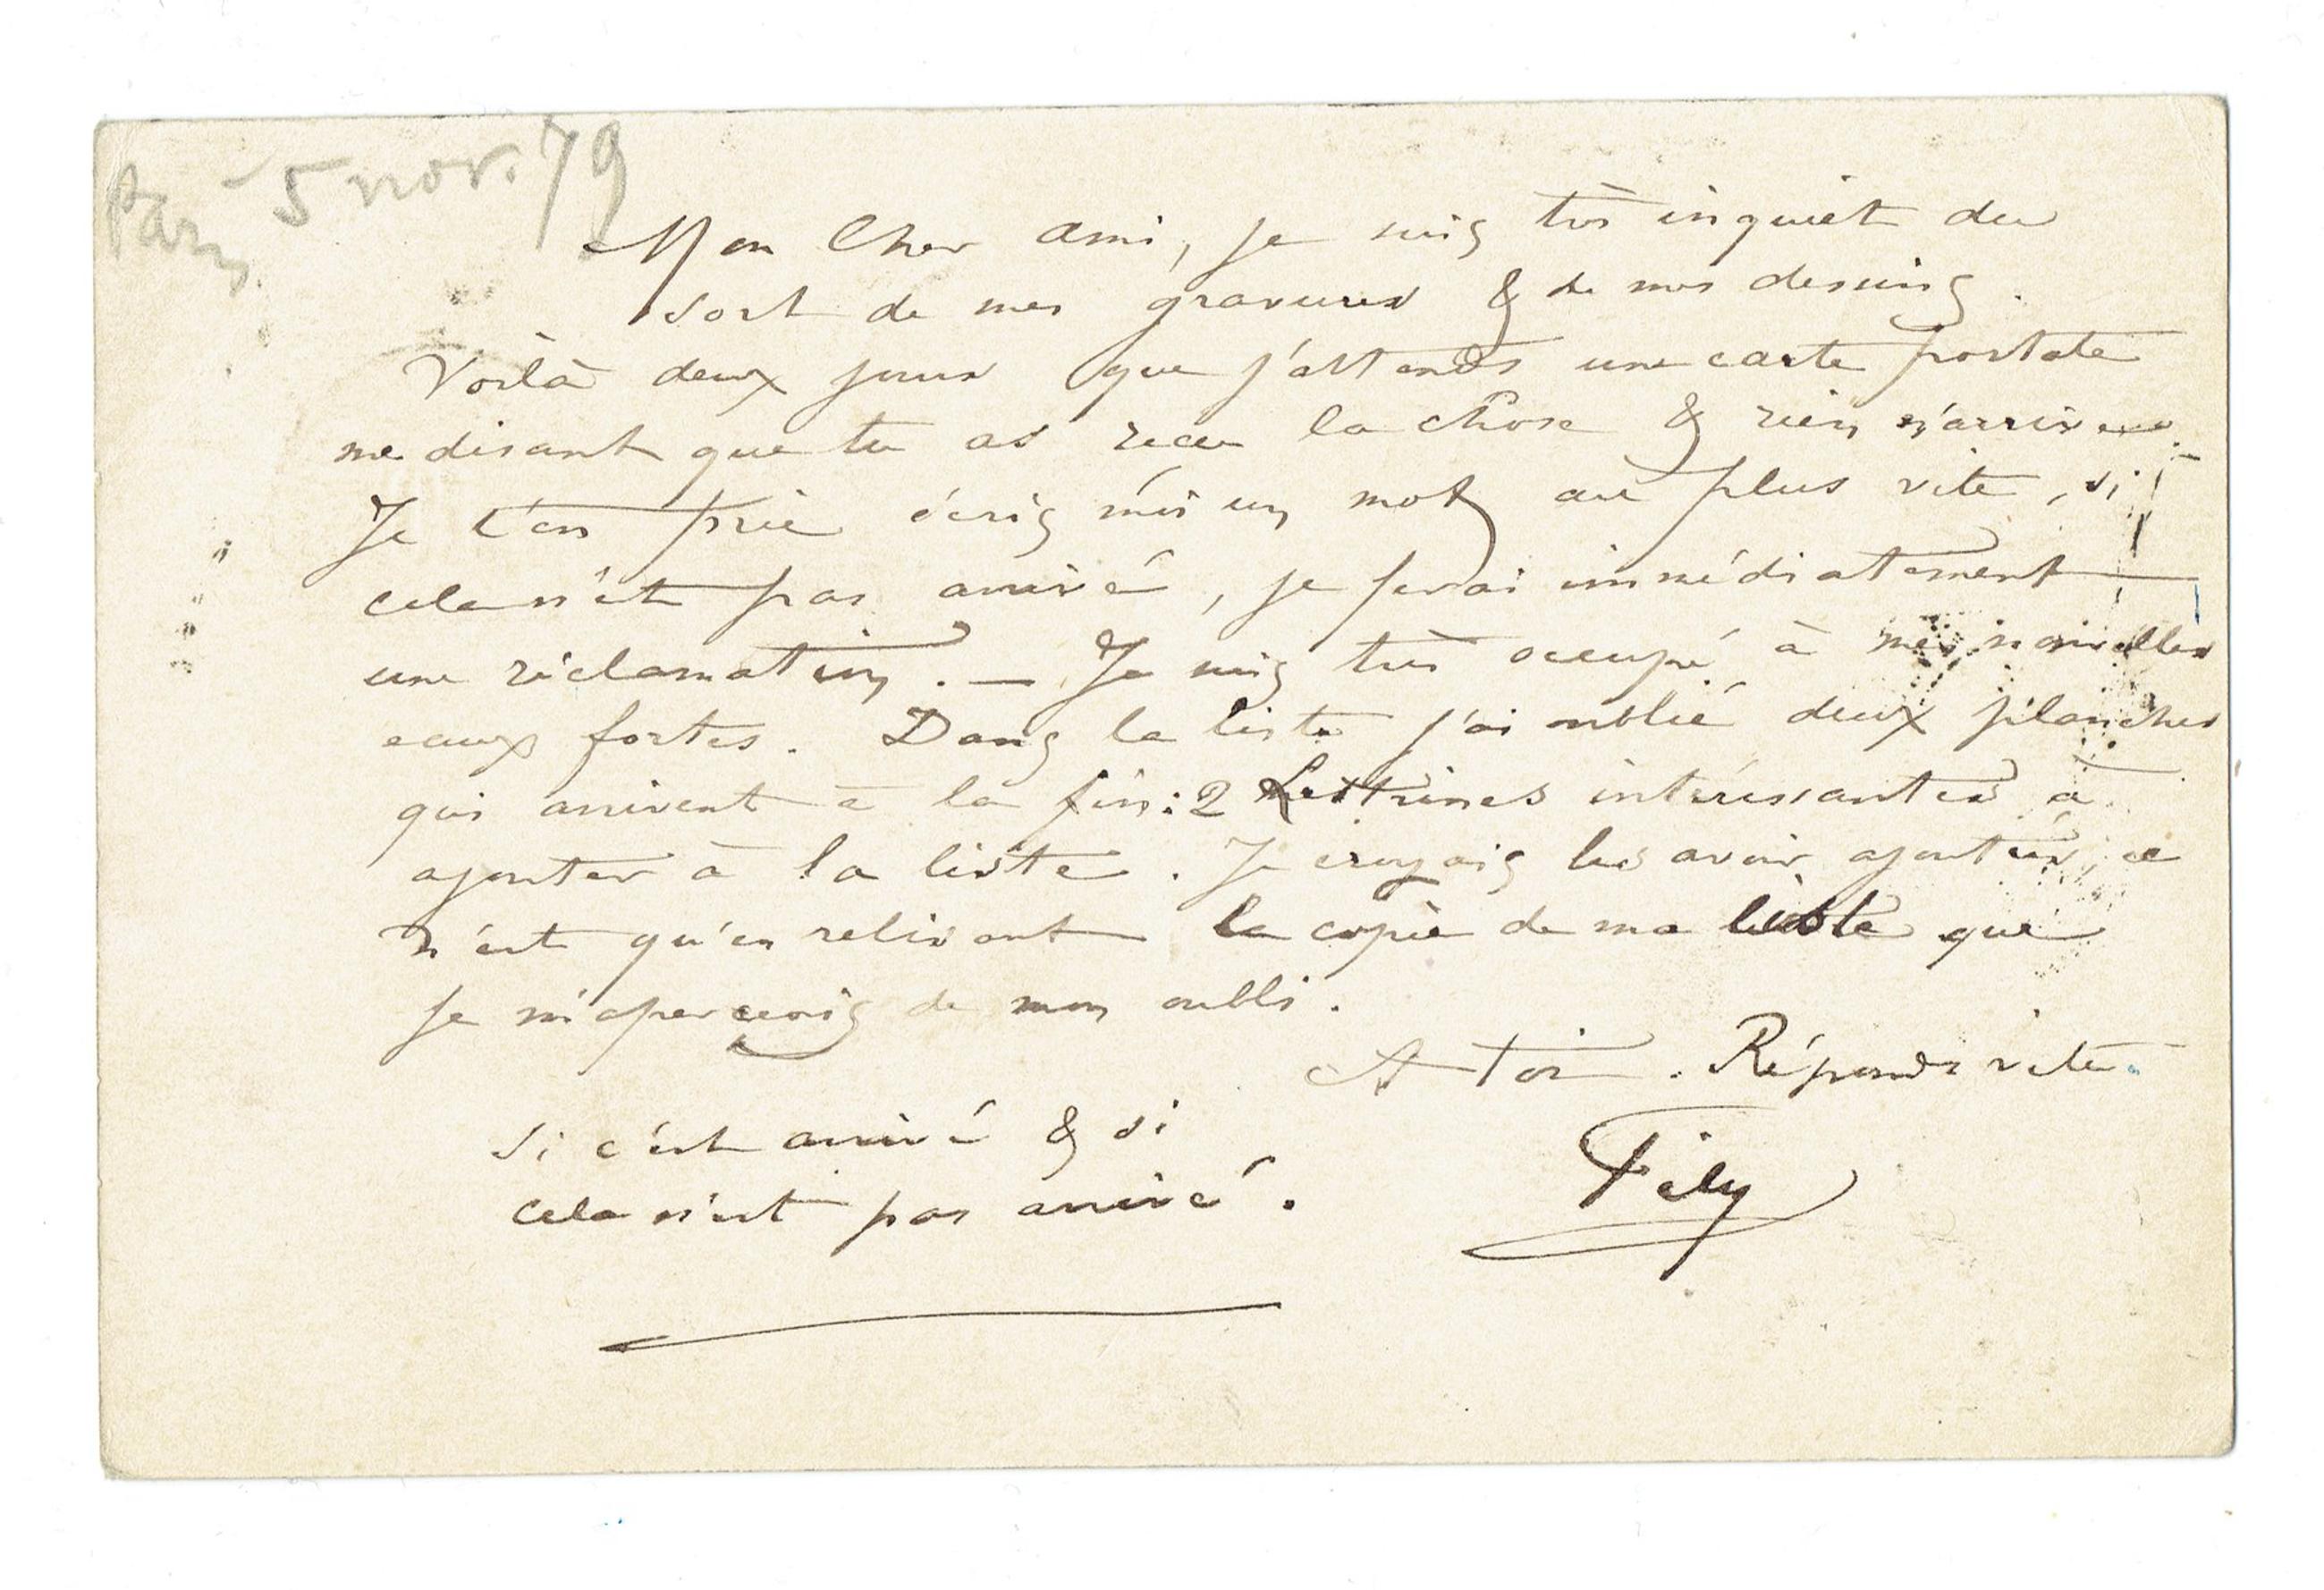 Paris 5 nov. 79
Mon Cher Ami, je suis très inquiet du
sort de mes gravures & de mes dessins.
Voilà deux jours que j'attends une carte postale
me disant que tu as reçu la chose & rien n'arrive.
Je t'en prie écris moi un mot au plus vite, si
cela n'est pas arrivé, je ferai immédiatement
une réclamation. — Je suis très occupé à mes nouvelles
eaux fortes. Dans la liste j'ai oublié deux planches
qui arrivent à la fin: 2 Lettrines intéressantes à
ajouter à la liste. Je croyais les avoir ajoutées, ce
n'est qu'en relisant la copie de ma liste que
je m'aperçois de mon oubli.
A toi. Réponds vite
si c'est arrivé & si
cela n'est pas arrivé.
Fély